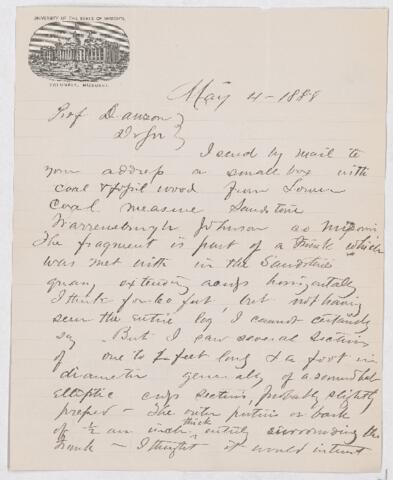 UNIVERSITY OF THE STATE OF MISSOURI,
COLUMBIA, MISSOURI.
May 4 - 1888
Prof Dawson
Dr Sir
I send by mail to
your address a small box with
coal & fossil wood from Lower
Coal measure Sandstone
Warrensburgh Johnson co Missouri
The fragment is part of a trunk which
was met with in the Sandstone
quarry extending across horizontally
I think for 60 feet, but not having
seen the entire log I cannot certainly
say But I saw several sections
of one to feet long & a foot in
diameter generally of a somewhat
elliptic cross section, probably slightly
pressed - The outer portion or bark
of ½ an inch thick entirely surrounding the
trunk - I thought it would interest